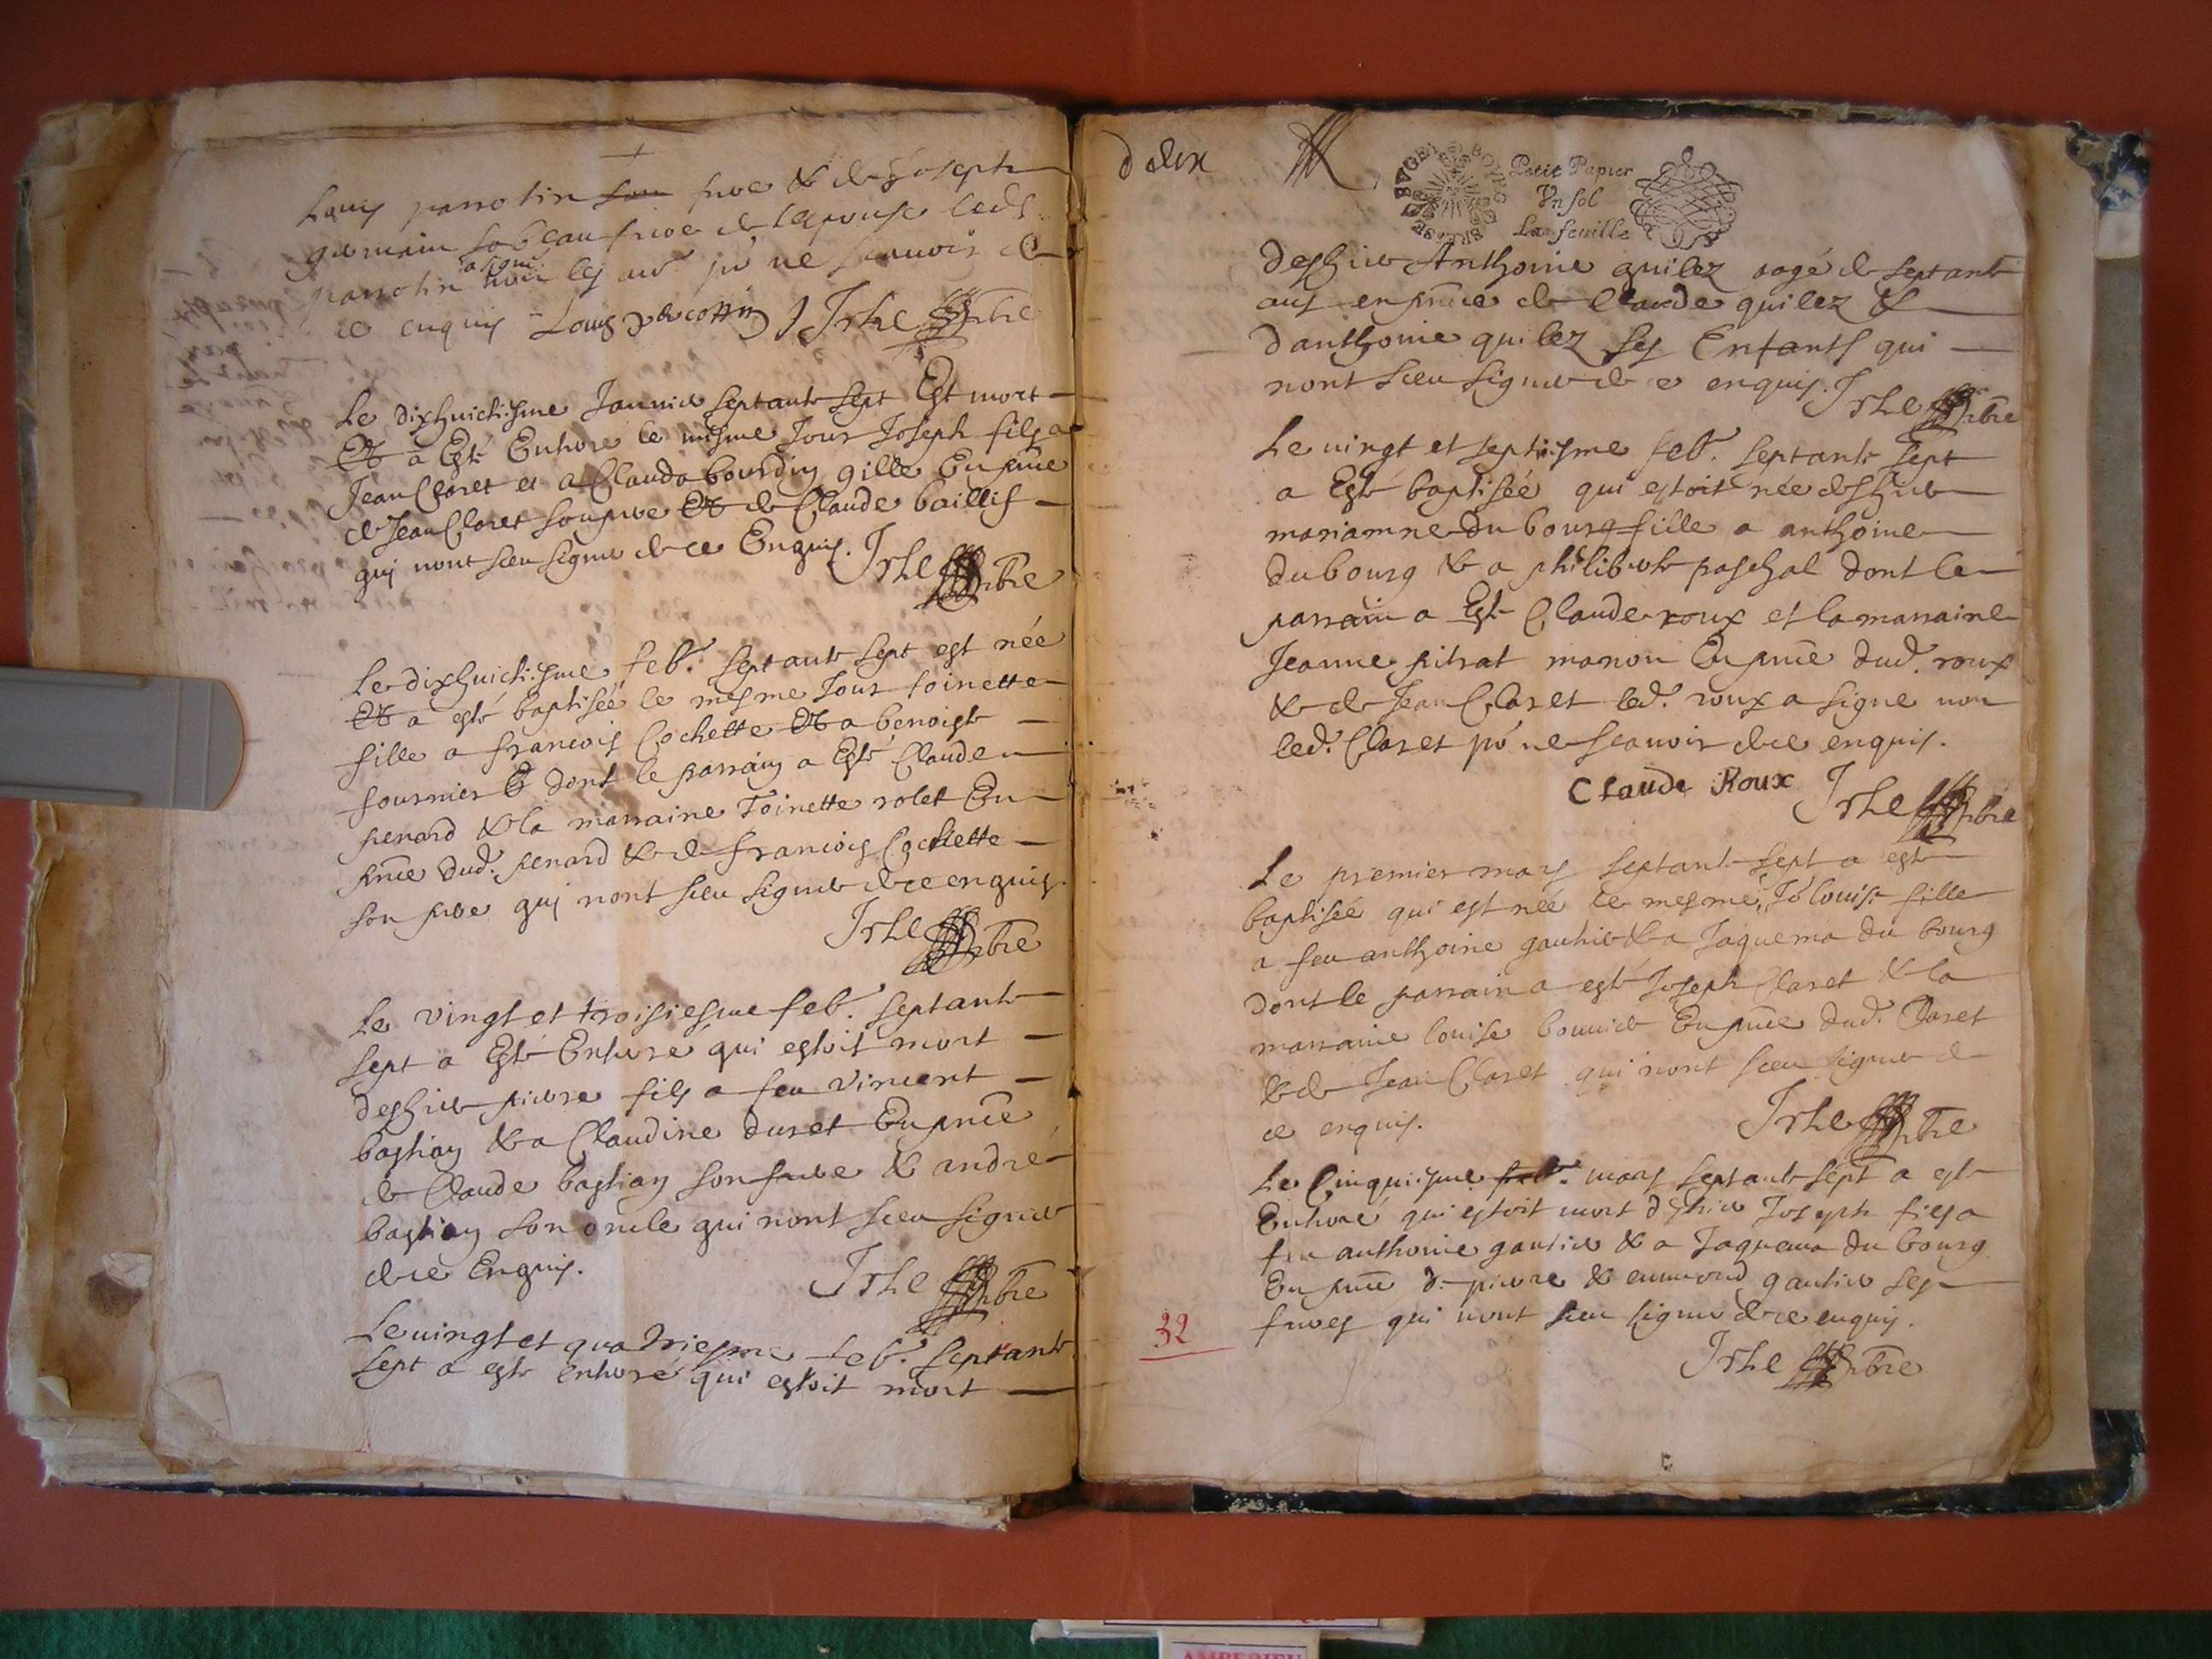 Louis parrotin son frere & de Joseph
germain so beaufrere de lepouse led.
parrotin a signé non les au.e po.r ne scauoir de
ce enquis Louis perrottin J Isle ptre
Le dixhuictiesme Januier septante sept Est mort
Et a Esté Enterré le mesme Jour Joseph fils a
Jean Claret et a Clauda bourdin gille En pnce
de Jean Claret son pere Et de Claude baillif
qui nont sceu signer de ce Enquis. Isle ptre
Le dixhuictiesme feb. septante sept est née
Et a esté baptisée le mesme Jour toinette
fille a francois Cochette Et a benoiste
fournier & dont le parrain a Esté Claude
penard & la marraine Toinette rolet En
pnce dud. penard & de francois Cochette
son pere qui nont sceu signer de ce enquis.
Isle ptre
Le vingt et troisiesme feb. septante
sept a Esté Enterré qui estoit mort
deshier pierre fils a feu vincent
bastian & a Claudine duret En pnce
de Claude bastian son frere & andre
bastian son oncle qui nont sceu signer
de ce Enquis. Isle ptre
Le uingt et quatriesme feb. septante
sept a este enterré qui estoit mort
deux
Petit Papier
Vn sol
La feuille
deshier Anthoine quilez aagé de septante
ans en pnce de Claude quilez &
danthoine quilez ses Enfants qui
nont sceu signer de ce enquis. Isle ptre
Le uingt et septiesme feb. septante sept
a Esté baptisée qui estoit née deshier
mariamne du bourg fille a anthoine
du bourg & a philiberte paschal dont le
parrain a Esté Claude roux et la marraine
Jeanne pitrat manon En pnce dud. roux
& de Jean Claret led. roux a signe non
led. Claret po.r ne scauoir de ce enquis.
Claude Roux Isle ptre
Le premier mars septante sept a esté
baptisée qui est née le mesme Jo.r louise fille
a feu anthoine gautier & a Jaquema du bourg
dont le parrain a esté Joseph Claret & la
marraine louise bouuier En pnce dud. Claret
& de Jean Claret qui nont sceu signer de
ce enquis. Isle ptre
Le Cinquiesme feb. mars septante sept a esté
Enterré qui estoit mort deshier Joseph fils a
feu anthoine gautier & a Jaquema du bourg
En pnce de pierre & enmond gautier ses
freres qui nont sceu signer de ce enquis.
Isle ptre
32